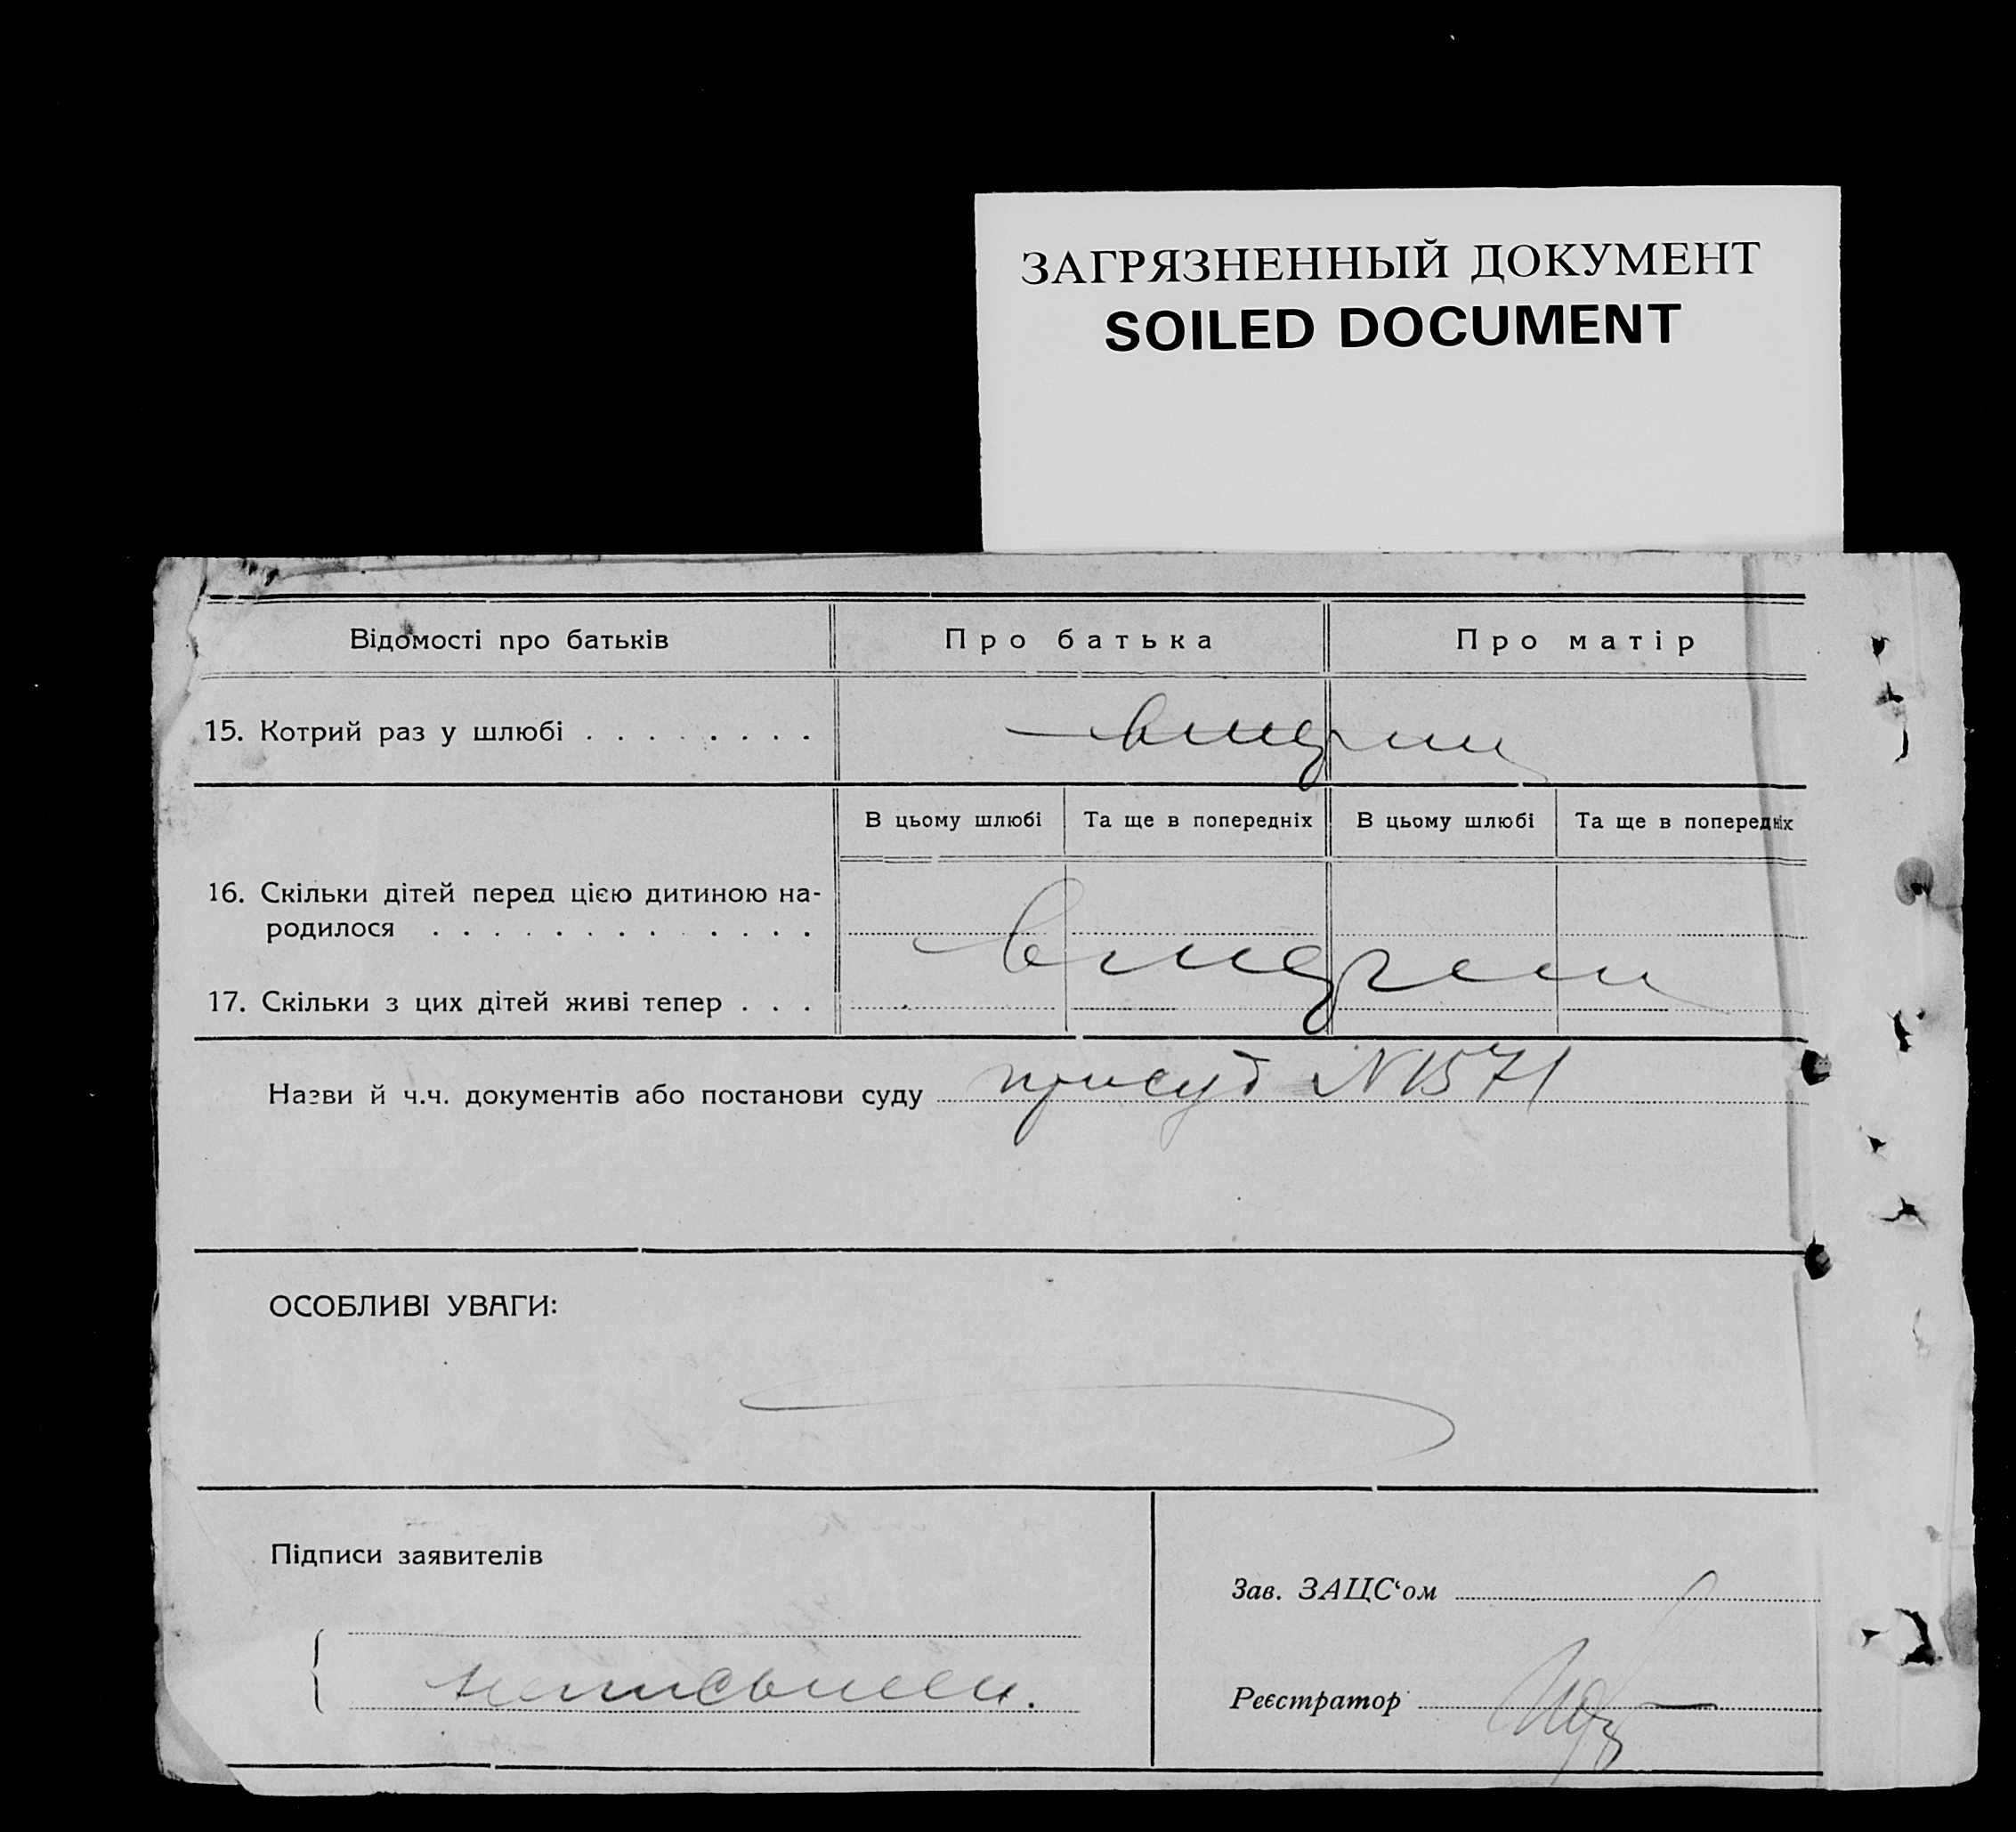 ЗАГРЯЗНЕННЫЙ ДОКУМЕНТ
SOILED DOCUMENT
Відомості про батьків Про батька Про матір
15. Котрий раз у шлюбі . . . . . . . .
В цьому шлюбі Та ще в попередніх В цьому шлюбі Та ще в попередніх
16. Скільки дітей перед цією дитиною на-
родилося . . . . . . . . . . . . .
17. Скільки з цих дітей живі тепер . . .
Назви й ч.ч. документів або постанови суду присуд N1571
ОСОБЛИВІ УВАГИ:
Підписи заявителів
Зав. ЗАЦС‘ом
Реєстратор